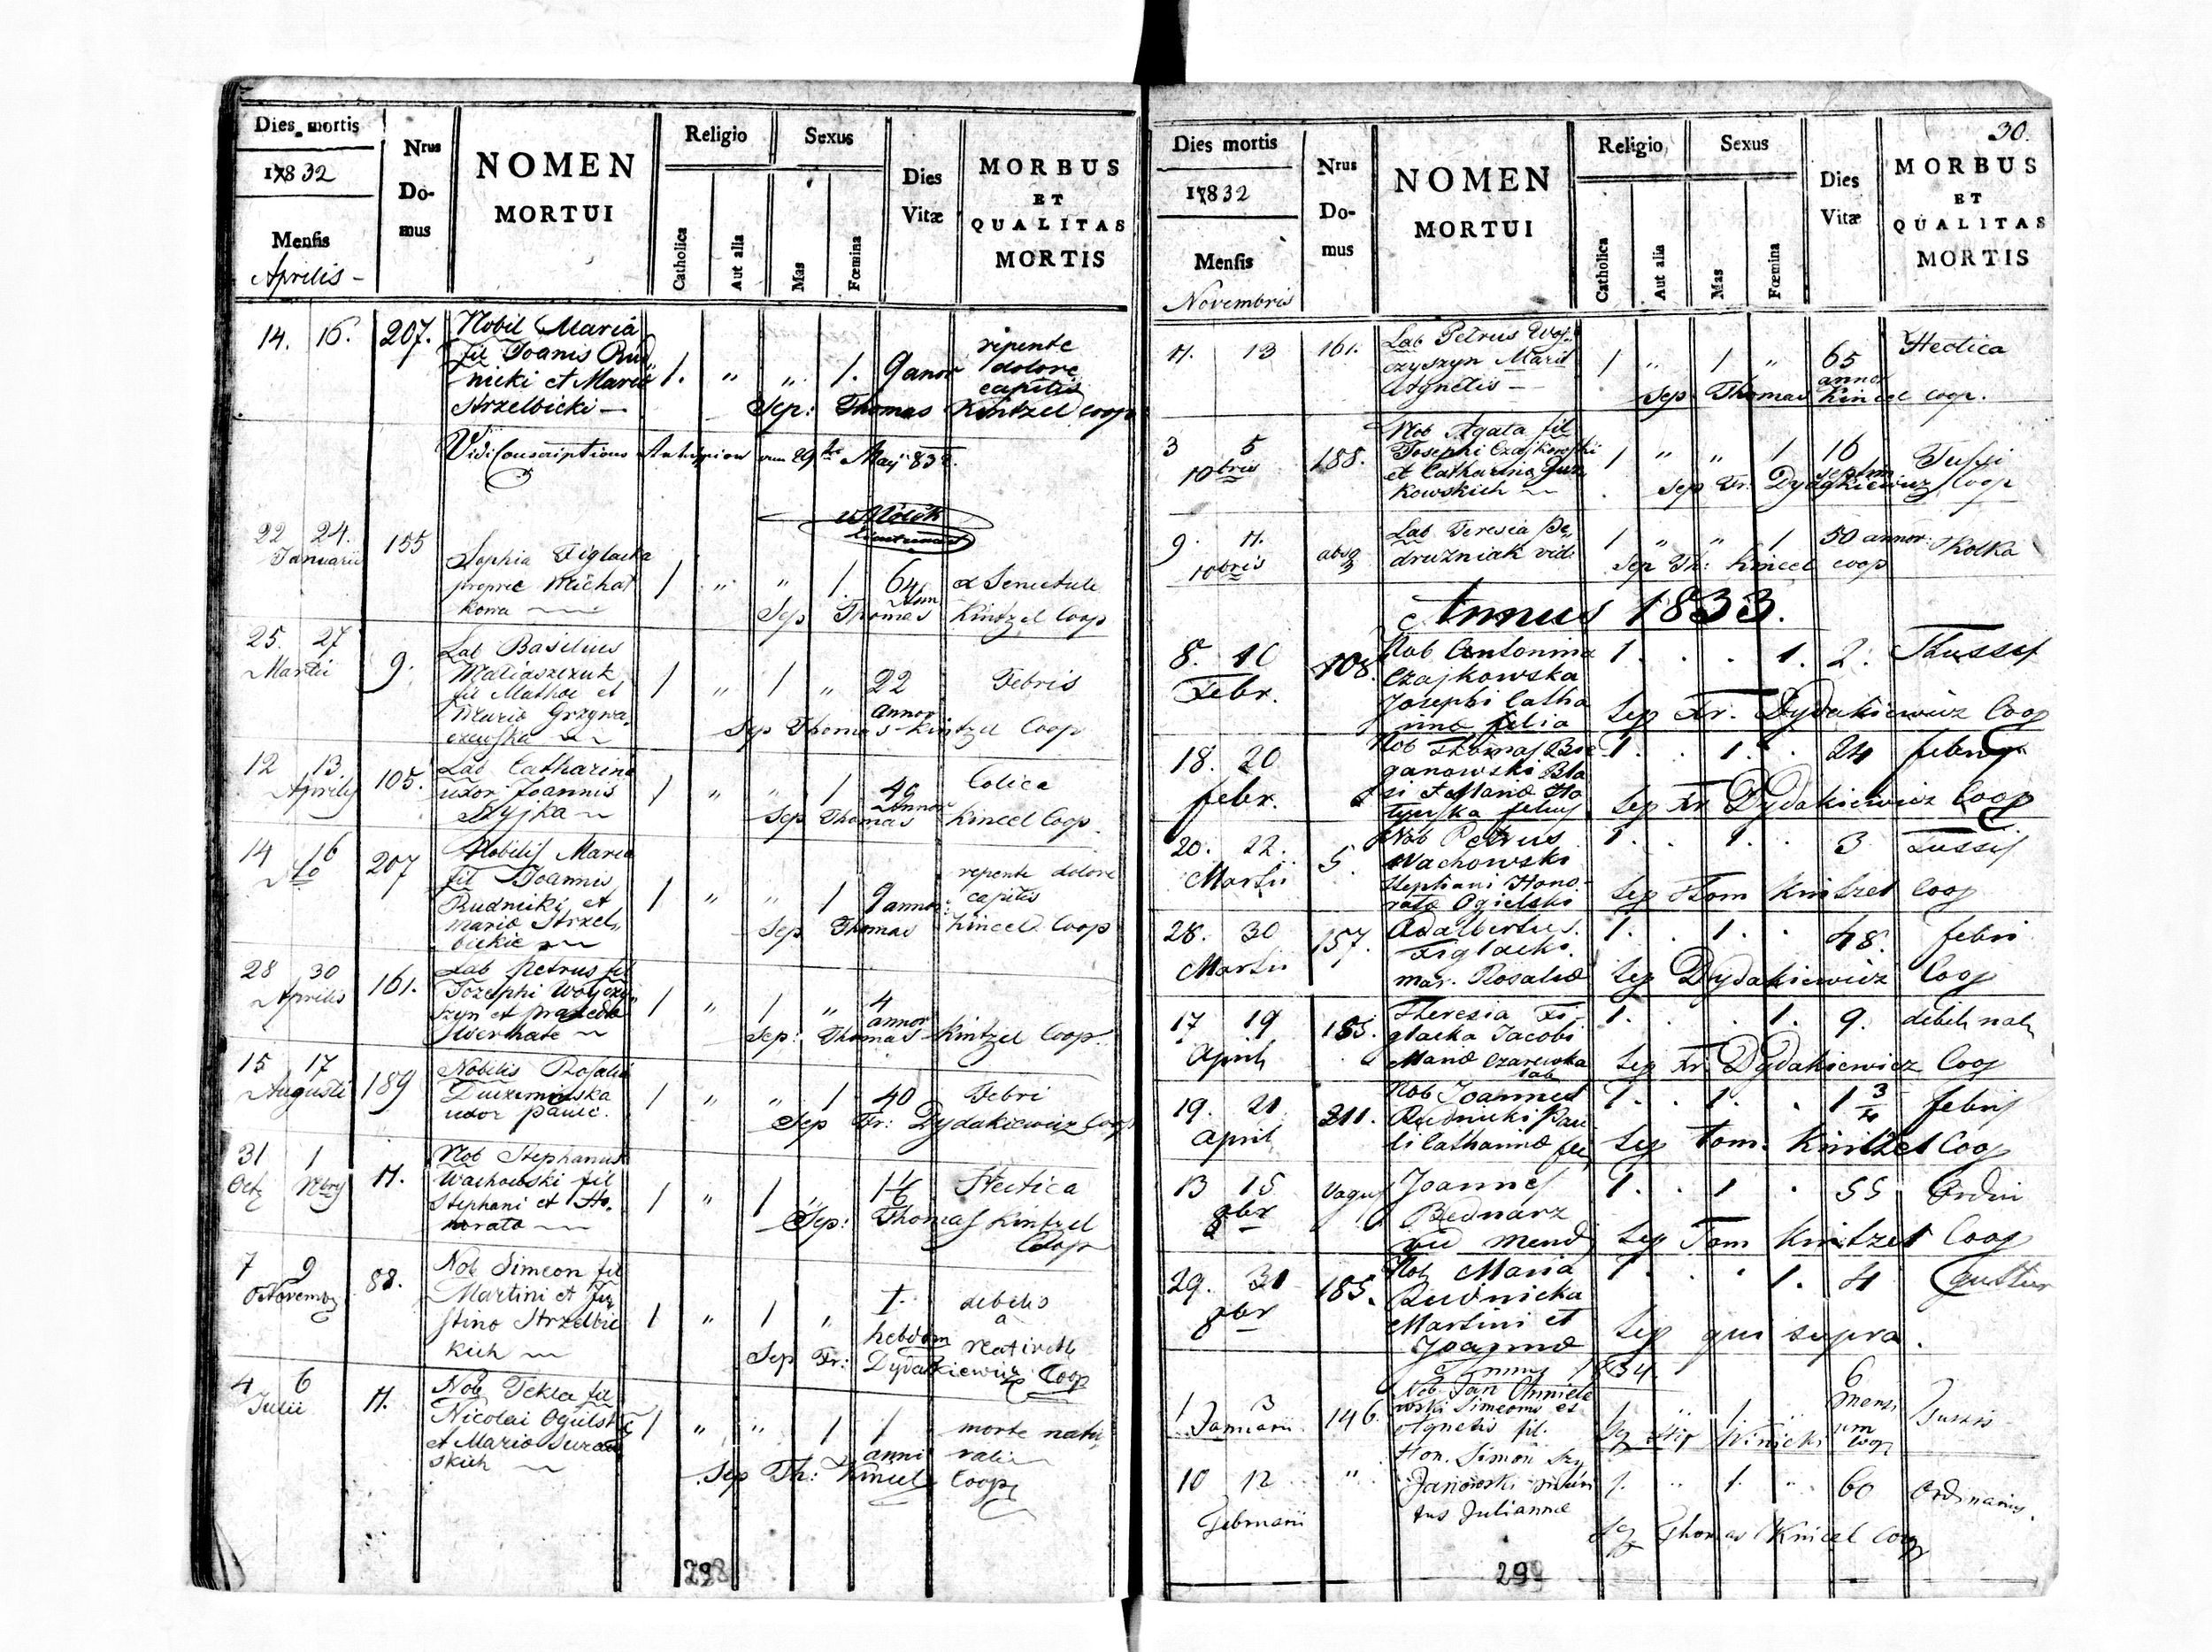 Dies mortis
1832
Mensis
Aprilis
Nrus
Do-
mus
NOMEN
MORTUI
Religio
Catholica
Aut alia
Sexus
Mas
Fœmina
Dies
Vitæ
MORBUS
ET
QUALITAS
MORTIS
14. 16. 207. Nobil Maria
fil Joanis Rud
nicki et Maria 1. " " 1. 9 anor repente
dolore
capitis
Strzelbicki
Sep: Thomas Kintzel coop
Vidi Conscriptions 29 May 832
22 24. 155
Januarii
Sophia Figlacka
proprie Michal
kowa 1 " " 1. 64 a Senectute
Sep Thomas Kintzel Coop
25. 27 9.
Martii
Lab Basilius
Matiaszczuk
fil Mathei et 1 " 1 " 22 Febris
annor
Sep Thomas Kintzel Coop
12 13. 105.
Aprilis
Lab Catharina
uxor Joannis 1 " " 1 40 Colica
annor
Sep Thomas Kincel Coop
14 16 207
Nobilis Maria
fil Joannis
Rudnicki et 1 " " 1 9 annor repente dolore
capitis
Maria Strzel
bickie
Sep Thomas Kincel Coop
28 30 161.
Aprilis
Lab Petrus fil
Jozephi Woyczy
szyn et 1 " 1 " 4
annor
Sep: Thomas Kintzel Coop.
15 17 189
Augusti
Nobilis Rosalia
uxor 1 " " 1 40 Febri
Sep Fr: Dydakiewicz Coop
31 1 11.
Nob Stephanus
Wachowski fil
Stephani et Ho
norata 1 " 1 " 1 1/6 Hectica
Sep: Thomas Kintzel
Coop
7 9 88.
Novemb
Nob Simeon fil
Martini et Ju
stina Strzelbic
kich 1 " 1 " 1. debilis
a
hebdom
Sep Fr: Dydakiewicz Coop
4 6 11.
Julii
Nob Tekla fil
Nicolai Ogielsk
et Maria
skich 1 " " 1 1 morte natu
anni rali
Sep Th: Kincel Coop
298
30.
Dies mortis
1832
Mensis
Novembris
Nrus
Do-
mus
NOMEN
MORTUI
Religio
Catholica
Aut alia
Sexus
Mas
Fœmina
Dies
Vitæ
MORBUS
ET
QUALITAS
MORTIS
11. 13 161. Lab Petrus Woy
czyszyn Marit 1 " 1 " 65 Hectica
Agnetis
annor
Sep Thomas Kincel coop.
3 5 188.
10bris
Nob Agata fil
Josephi Czajkowski
et Catharina
kowskich 1 " " 1 16 Tussi
septim
Sep Fr: Dydakiewicz Coop
9. 11.
10bris
Lab Teresia Be
druzniak vid 1 " " 1 50 annor Kolka
Sep Th: Kincel coop
Annus 1833.
8. 10 108.
Febr.
Nob Antonina
Czajkowska
Josephi Catha
rina filia 1 . . 1. 2. Tussis
Sep Fr. Dydakiewicz Coop
18. 20
febr.
Nob Thomas Bie
ganowski Bla
si et Maria 1. . 1. . 24 febris
Sep Fr Dydakiewicz Coop
20. 22. 5.
Martii
Nob Petrus
Wachowski
Stephani Hono-
rata Ogielski 1. . 1. . 3 Tussis
Sep Tom Kintzel Coop
28. 30 157.
Martii
Adalbertus
Figlacki
mar. Rosalia 1. . 1. . 48. febri
Sep Dydakiewicz Coop
17 19 185.
April
Theresia Fi
glacka Jacobi
Maria 1. . . 1. 9.
Sep Fr Dydakiewicz Coop
19. 21 211.
April
Nob Joannes
Rudnicki Pau
li Catharina 1. . 1. . 1 3/4 febris
Sep Tom. Kintzel Coop
13 15 Vagus
Joannes
Bednarz
mend 1. . 1 . 55 Ordin
Sep Tom Kintzel Coop
29. 31 185.
Nob Maria
Rudnicka
Martini et
Joanna 1. . . 1. 4
Sep qui supra.
Annus 1834.
1 3 146.
Januarii
Nob Jan
Simeonis et
Agnetis fil. 1 " 1 " 6
mensi
um Tussis
Winicki Coop
10 12 "
Februarii
Hon. Simon Szy
Janowski mari
tus Julianna 1. " 1. " 60 Ordinaria
Thomas Kincel Coop
299